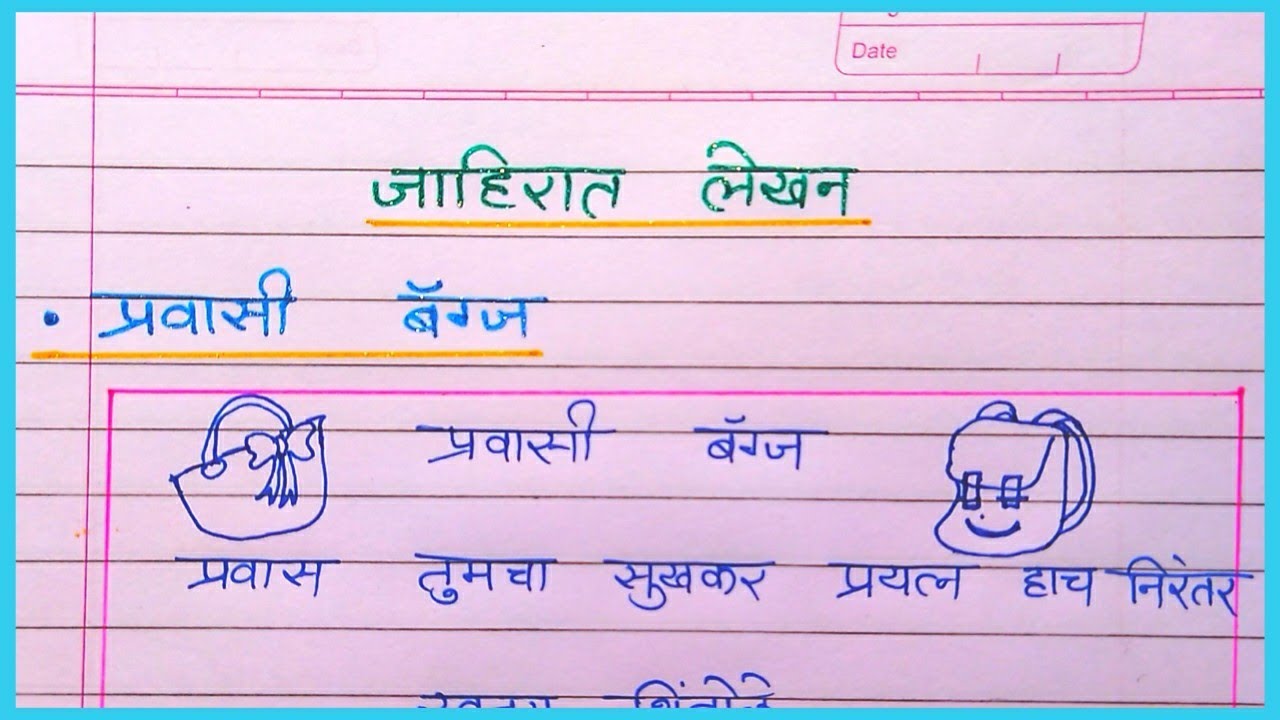 Date
जाहिरात लेखन
• प्रवासी बॅग्ज
प्रवासी बॅग्ज
प्रवास तुमचा सुखकर प्रयत्न हाच निरंतर